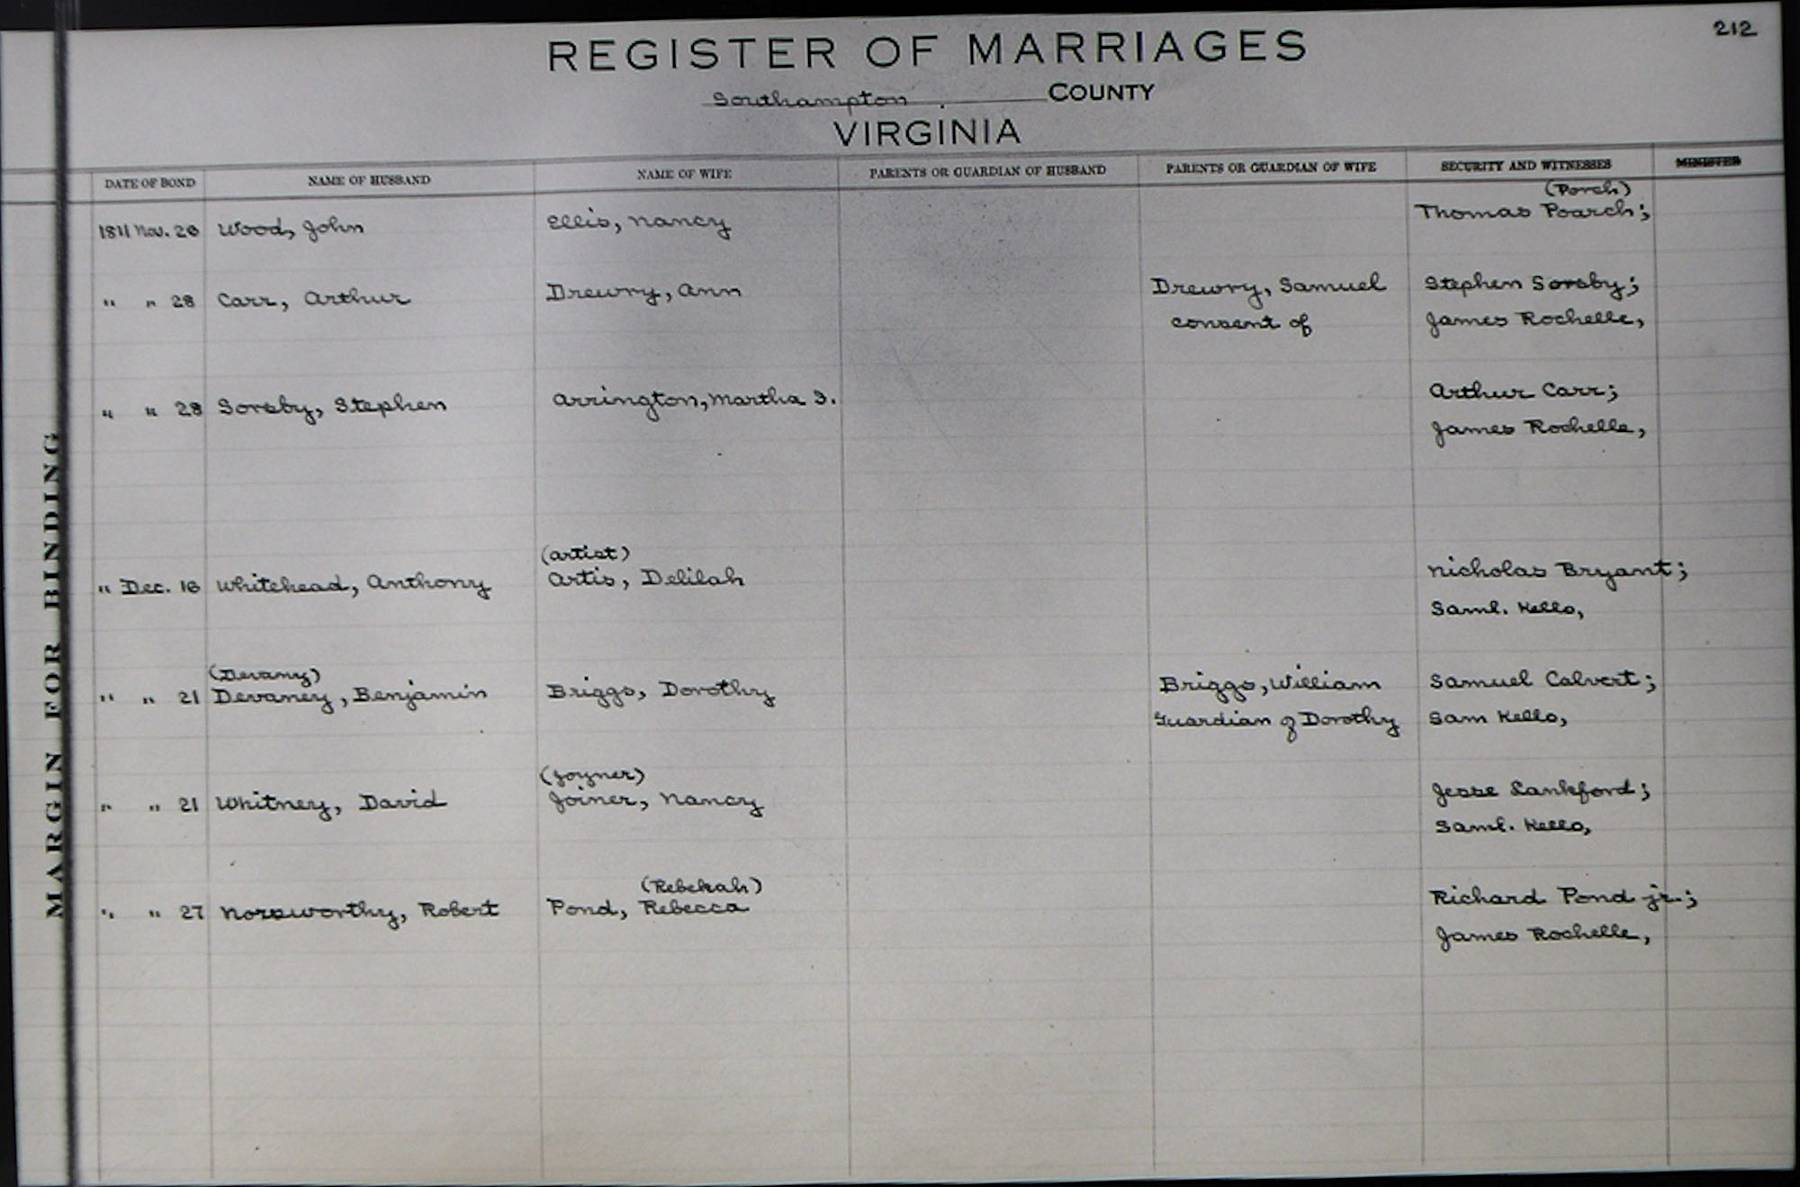 212
REGISTER OF MARRIAGES
Southampton COUNTY
VIRGINIA
DATE OF BOND NAME OF HUSBAND NAME OF WIFE PARENTS OR GUARDIAN OF HUSBAND PARENTS OR GUARDIAN OF WIFE SECURITY AND WITNESSES MINISTER
(Porch)
1811 Nov. 26 Wood, John Ellis, Nancy Thomas Poarch;
" " 28 Carr, Arthur Drewry, Ann Drewry, Samuel Stephen Sorsby;
consent of James Rochelle,
" " 28 Sorsby, Stephen Arrington, Martha S. Arthur Carr;
James Rochelle,
(Artist)
" Dec. 16 Whitehead, Anthony Artis, Delilah Nicholas Bryant;
Saml. Kello,
(Devany)
" " 21 Devaney, Benjamin Briggs, Dorothy Briggs, William Samuel Calvert;
Guardian of Dorothy Sam Kello,
(Joyner)
" " 21 Whitney, David Joiner, Nancy Jesse Lankford;
Saml. Kello,
(Rebekah)
" " 27 Norsworthy, Robert Pond, Rebecca Richard Pond jr.;
James Rochelle,
MARGIN FOR BINDING